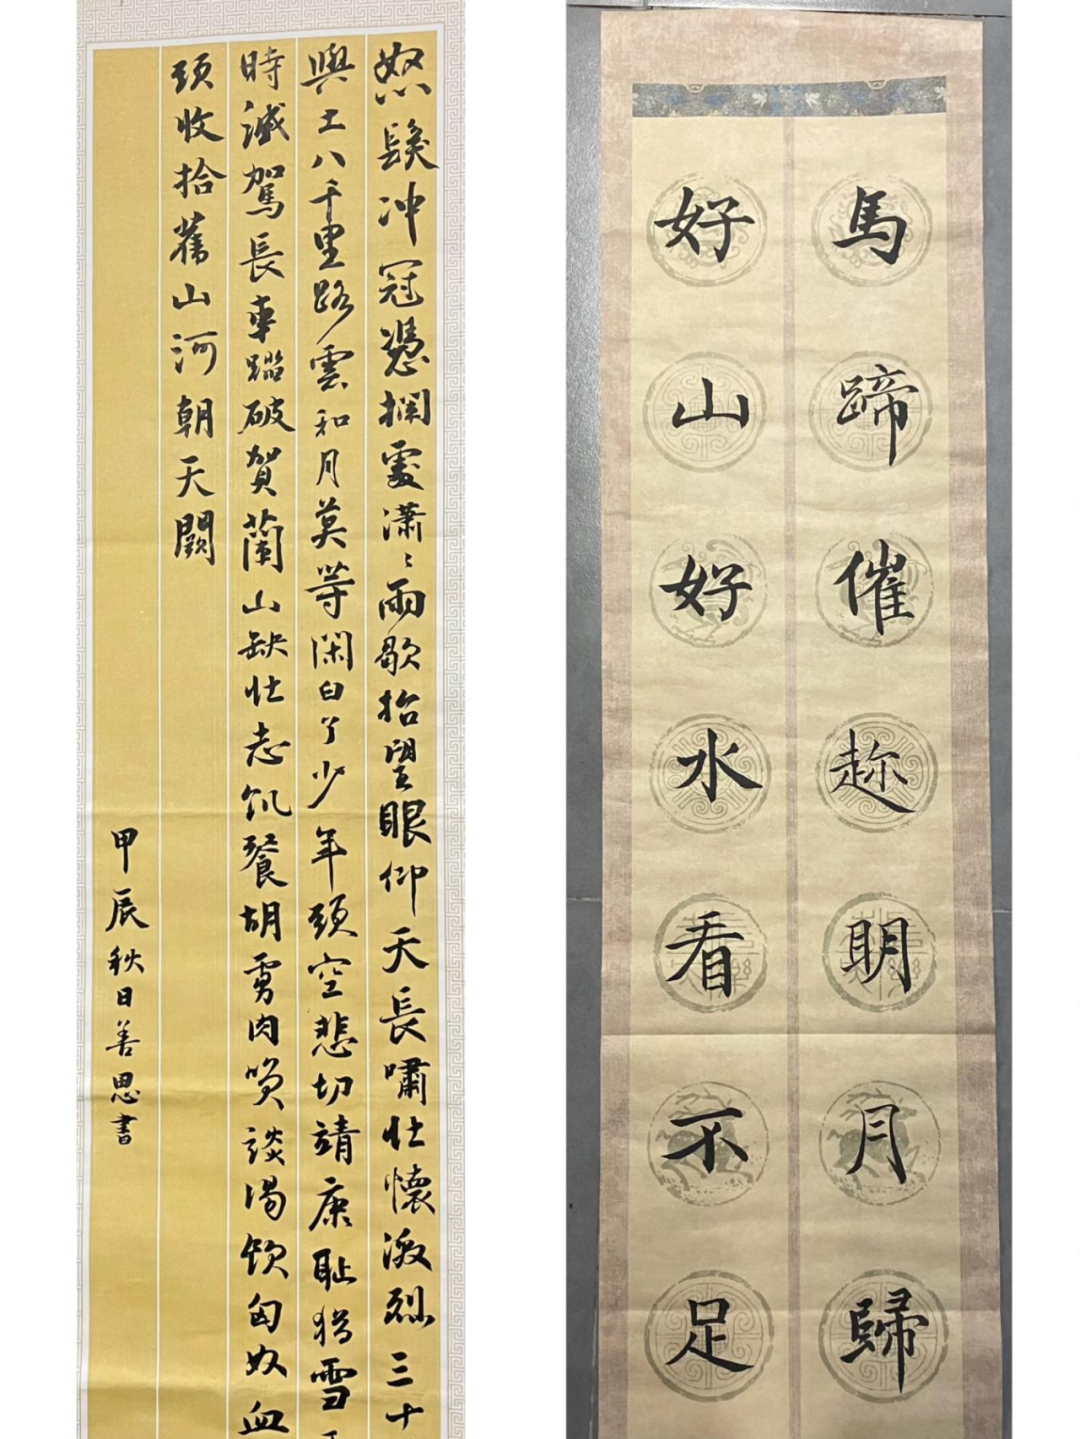 怒髮冲冠憑欄處瀟〻雨歇抬望眼仰天長嘯壯懷激烈三十
與土八千里路雲和月莫等閑白了少年頭空悲切靖康耻猶雪
時滅駕長車踏破賀蘭山缺壯志飢餐胡虜肉笑談渴飲匈奴血
頭收拾舊山河朝天闕
甲辰秋日善思書
馬蹄催趁明月歸
好山好水看不足